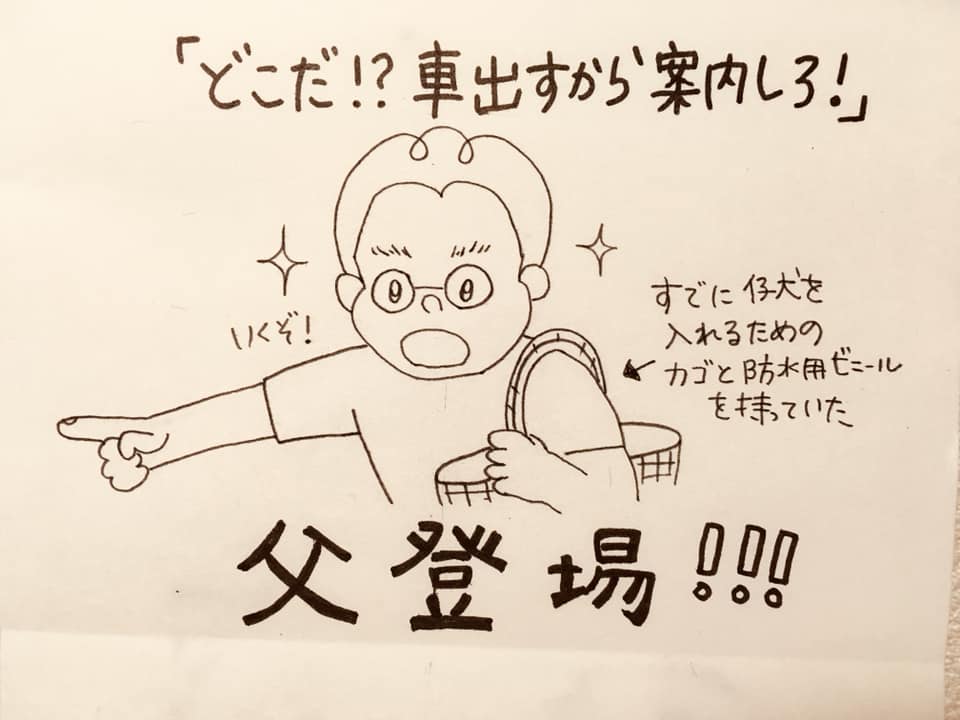 「どこだ!?車出すから案内しろ!」
いくぞ!
すでに仔犬を
入れるための
カゴと防水用ビニール
を持っていた
父登場!!!